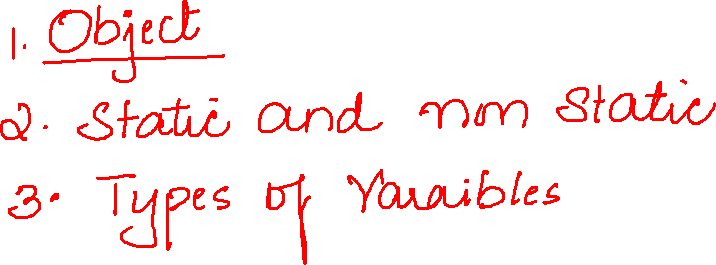 1. Object
2. Static and non static
3. Types of Varaibles